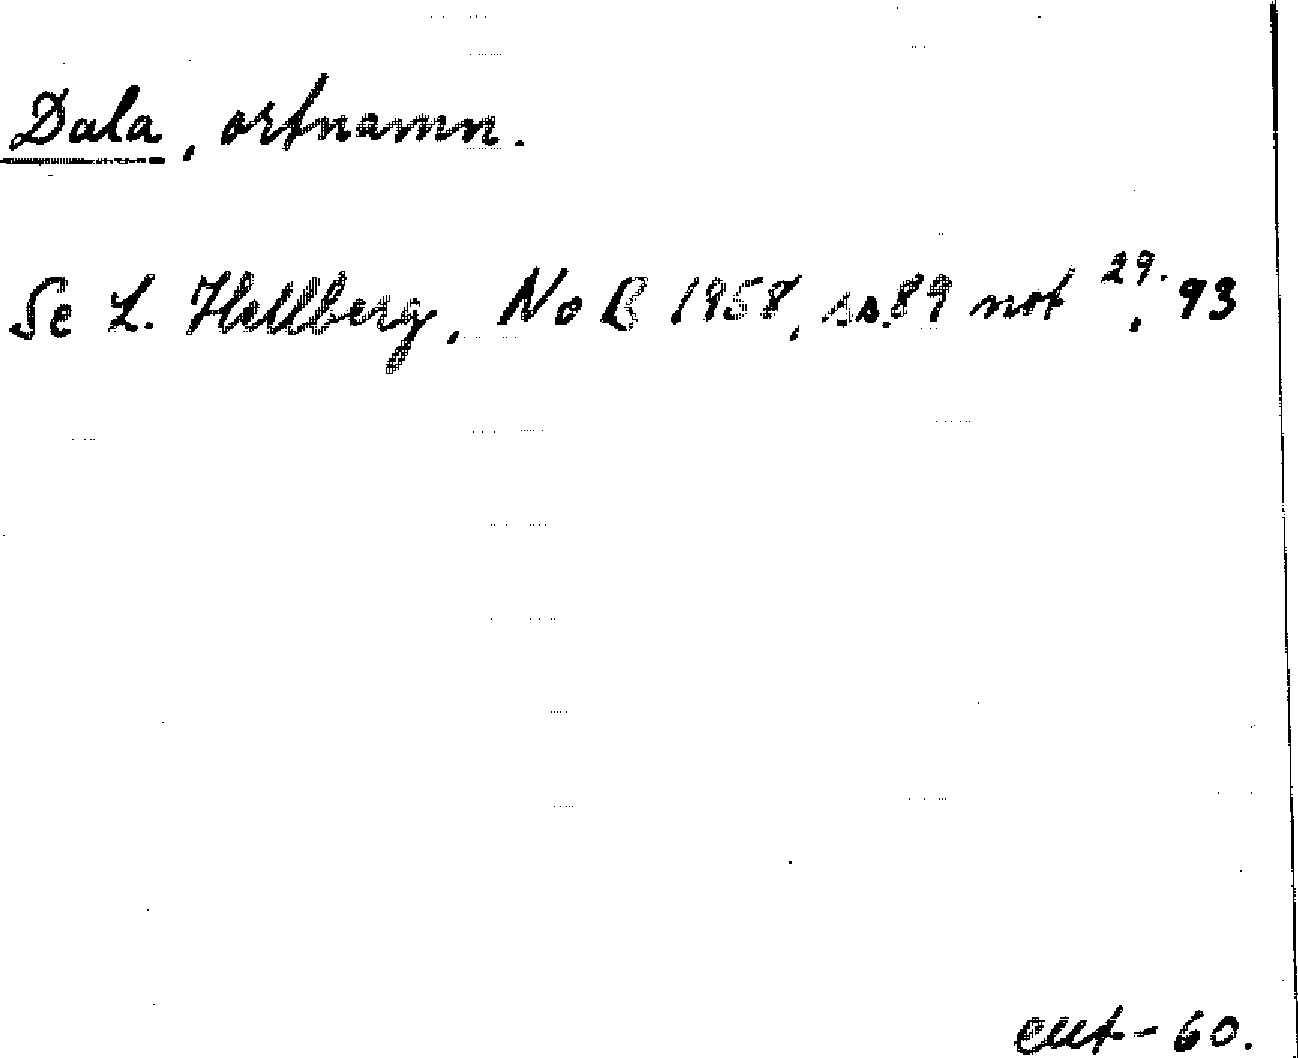 Dala, ortnamn.
Se L. Hellberg, NoB 1958, ss. 89 not 29., 93